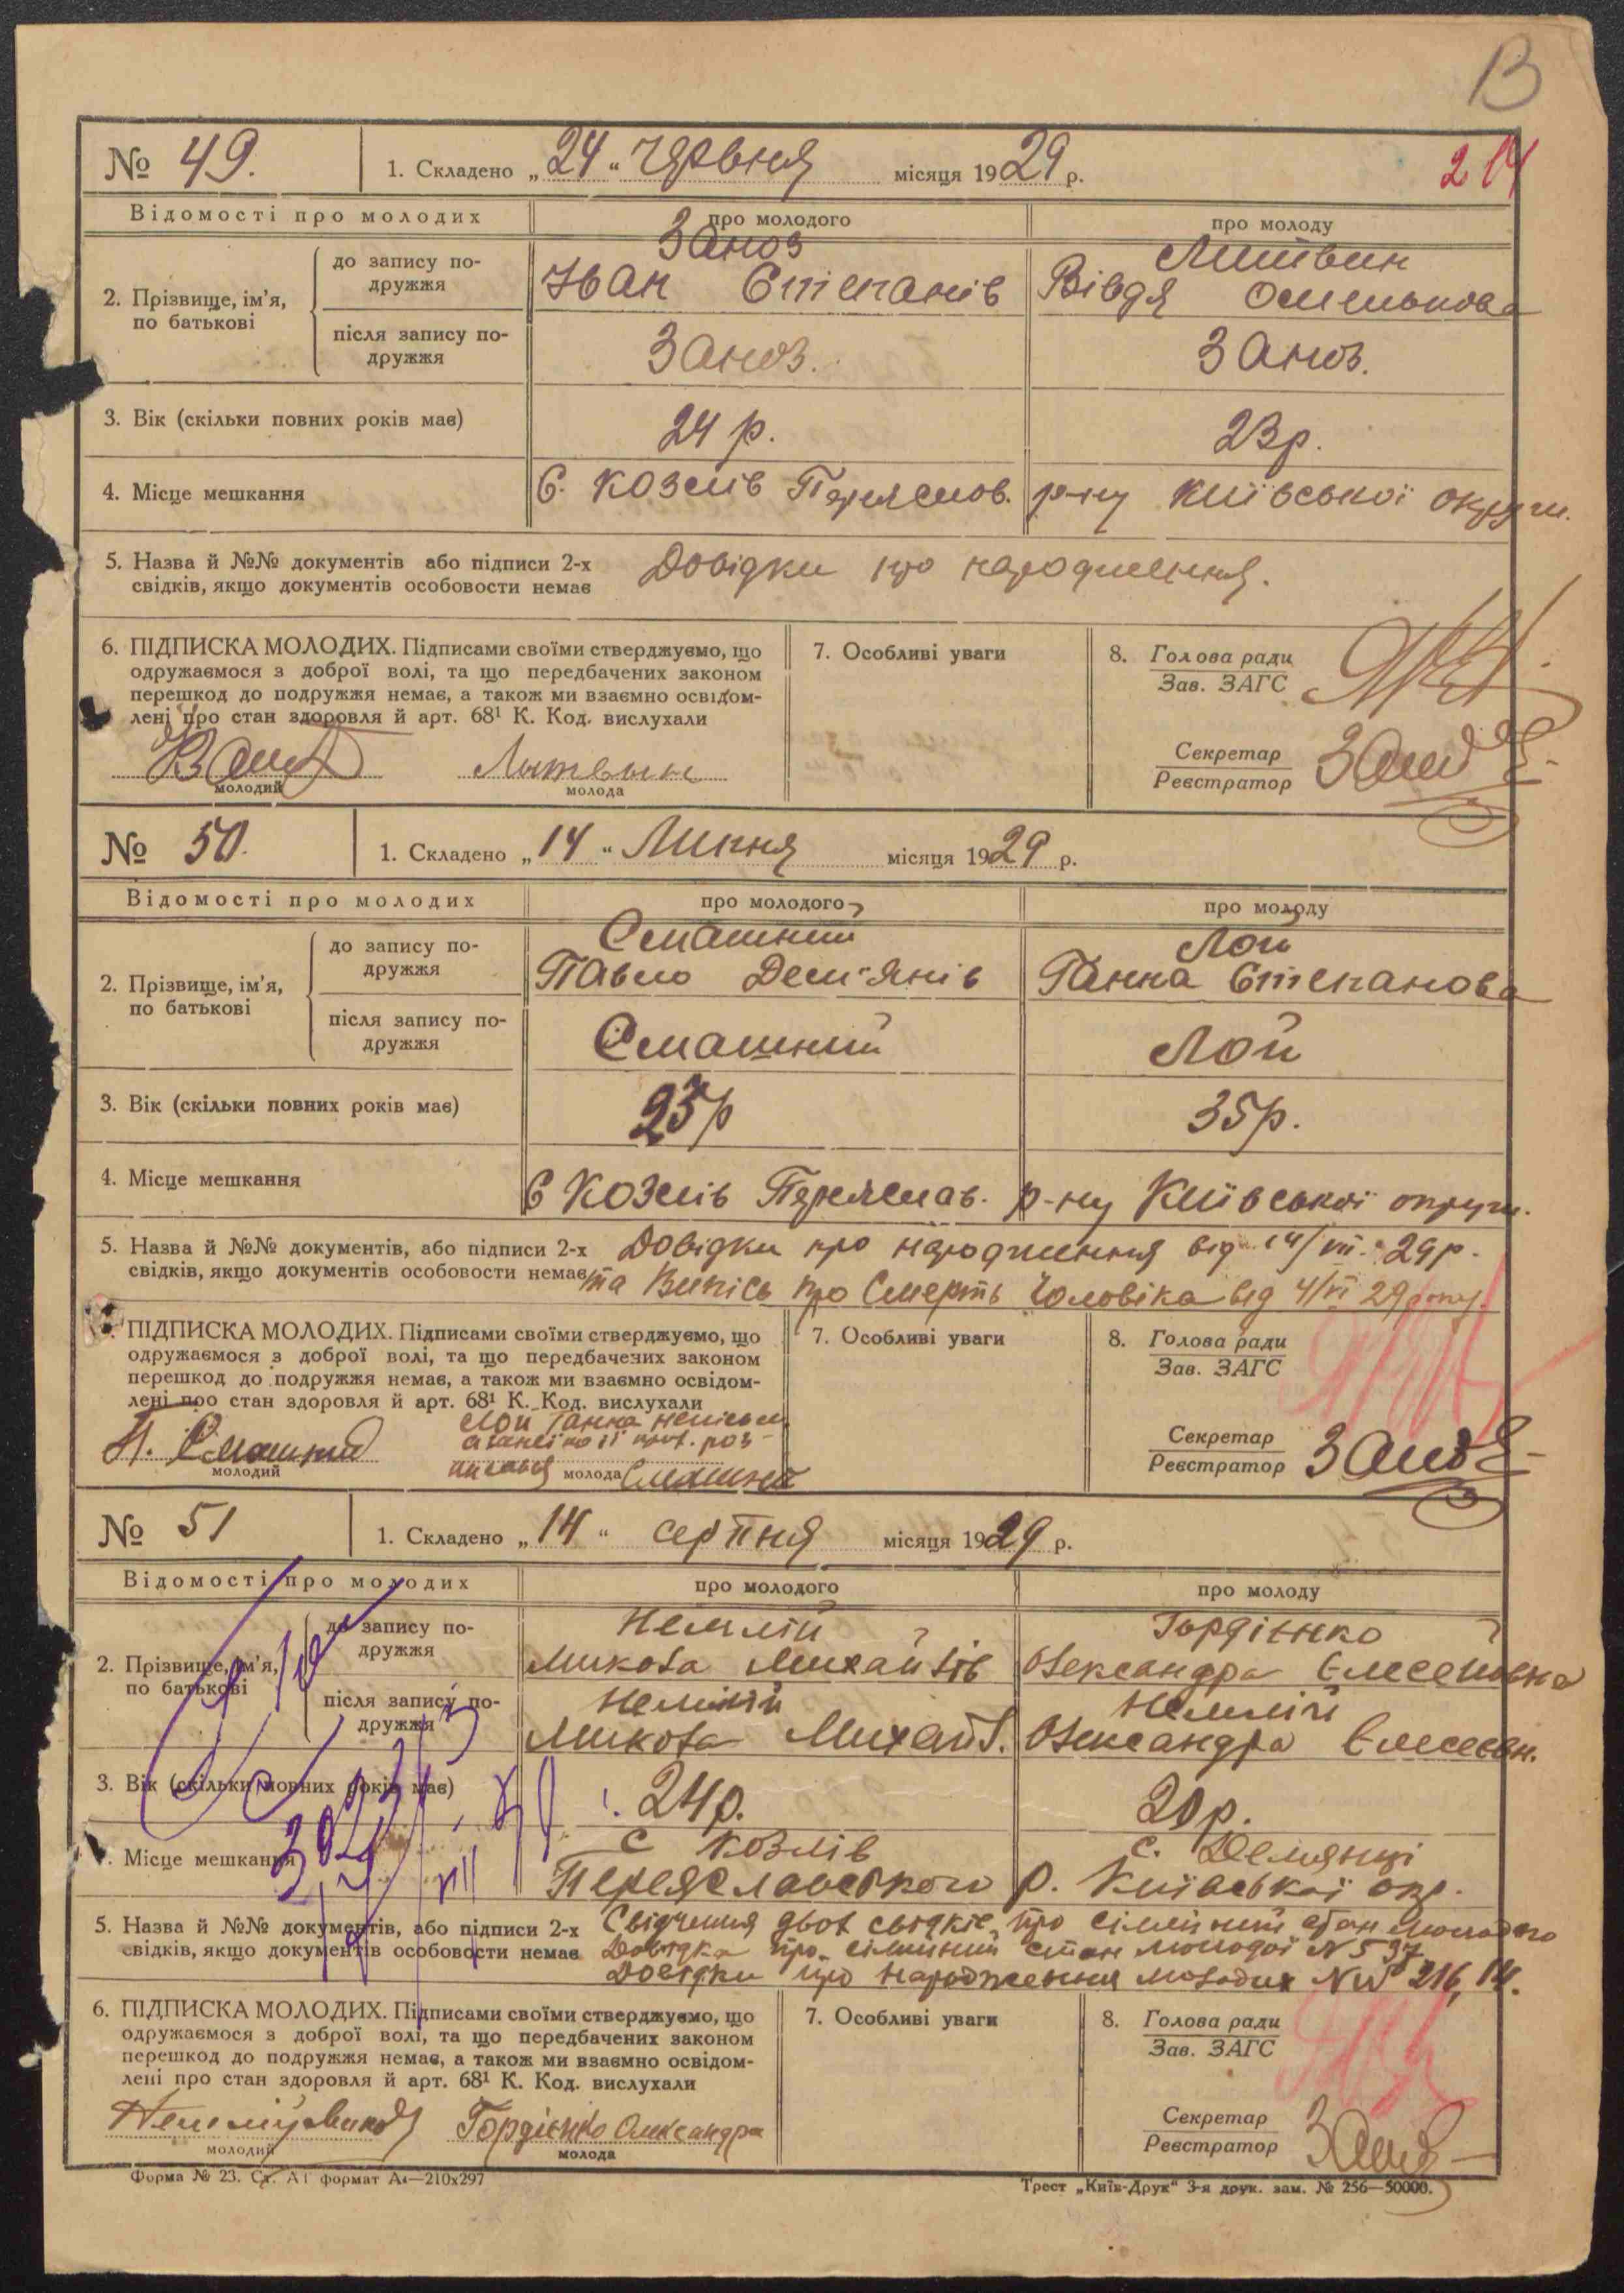 В
204
№ 49. 1. Складено „24" Червня місяця 1929 р.
Відомості про молодих про молодого про молоду
до запису подружжя Заноз Литвин
2. Прізвище, ім'я, по батькові Іван Степанів Вівдя Омелькова
після запису подружжя Заноз. Заноз.
3. Вік (скільки повних років має) 24 р. 23 р.
4. Місце мешкання С. Козлів Переяслов. р-ну Київської округи.
5. Назва й №№ документів або підписи 2-х Довідки про народження.
свідків, якщо документів особовости немає
6. ПІДПИСКА МОЛОДИХ. Підписами своїми стверджуємо, що 7. Особливі уваги 8. Голова ради
одружаємося з доброї волі, та що передбачених законом Зав. ЗАГС
перешкод до подружжя немає, а також ми взаємно освідом-
лені про стан здоровля й арт. 68¹ К. Код. вислухали
Секретар
Литвын Реєстратор
молодий молода
№ 50. 1. Складено „14" Липня місяця 1929 р.
Відомості про молодих про молодого про молоду
до запису подружжя Смашний Лой
2. Прізвище, ім'я, по батькові Павло Дем'янів Ганна Степанова
після запису подружжя Смашний Лой
3. Вік (скільки повних років має) 35 р.
4. Місце мешкання С Козлів Переяслав. р-ну Київської округи.
5. Назва й №№ документів, або підписи 2-х Довідки про народження від 14/VII. 29 р.
свідків, якщо документів особовости немає та Випісь про Смерть Чоловіка від 4/VI 29 року.
ПІДПИСКА МОЛОДИХ. Підписами своїми стверджуємо, що 7. Особливі уваги 8. Голова ради
одружаємося з доброї волі, та що передбачених законом Зав. ЗАГС
перешкод до подружжя немає, а також ми взаємно освідом-
лені про стан здоровля й арт. 68¹ К. Код. вислухали
Лой Ганна неписьм
П. Смашний Секретар
молодий молода Реєстратор
№ 51 1. Складено „14" серпня місяця 1929 р.
Відомості про молодих про молодого про молоду
до запису подружжя Немлій Гордієнко
2. Прізвище, ім'я, по батькові Микола Михайлів Олександра Єлесеювна
після запису подружжя Немлій Немлій
Микола Михайл. Олександра Єлесеєвн.
3. Вік (скільки повних років має) 24 р. 20 р.
с Козлів с. Демянці
4. Місце мешкання Переяславського р. Київської окр.
5. Назва й №№ документів, або підписи 2-х Свідчення двох свідків про сімейний стан молодого
свідків, якщо документів особовости немає Довідка про сімейний стан молодої N 537
Довідки про народження молодих NN 216, 14.
6. ПІДПИСКА МОЛОДИХ. Підписами своїми стверджуємо, що 7. Особливі уваги 8. Голова ради
одружаємося з доброї волі, та що передбачених законом Зав. ЗАГС
перешкод до подружжя немає, а також ми взаємно освідом-
лені про стан здоровля й арт. 68¹ К. Код. вислухали
Гордієнко Олександра Секретар
молодий молода Реєстратор
Форма № 23. Ст. А1 формат А4—210x297 Трест „Київ-Друк" 3-я друк. зам. № 256—50000.